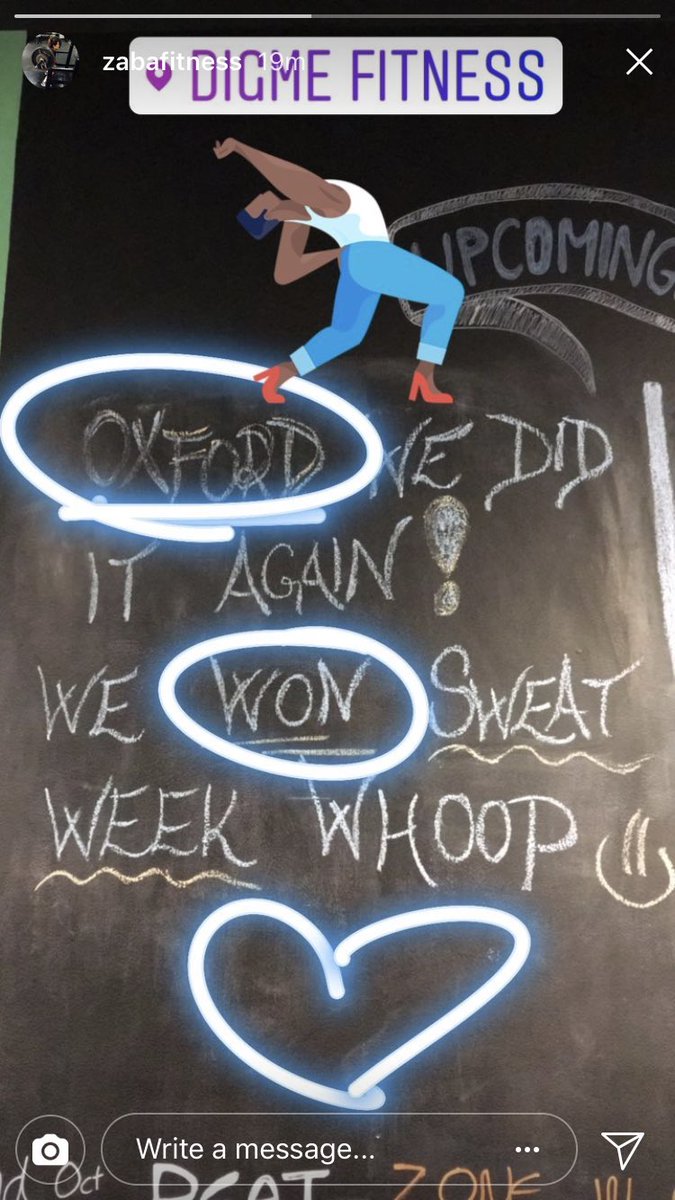 zabafitness 19m
DIGME FITNESS
UPCOMING
OXFORD WE DID
IT AGAIN!
WE WON SWEAT
WEEK WHOOP
Write a message...
Oct ZONE